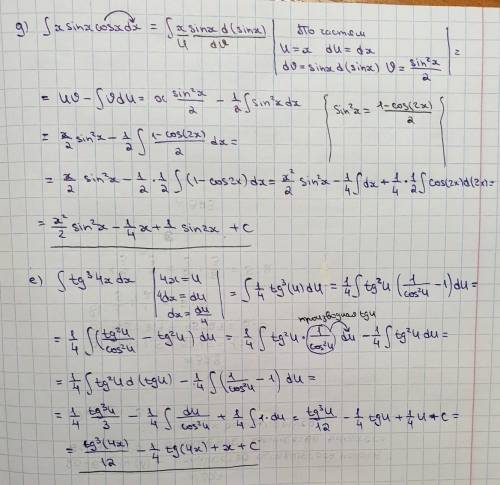 д) ∫ x sinx cosx dx = ∫ x sinx d(sinx) | По частям
U dϑ | U = x dU = dx | =
dϑ = sinx d(sinx) ϑ = sin²x/2
= Uϑ - ∫ϑdU = x sin²x/2 - 1/2 ∫ sin²x dx { sin²x = 1-cos(2x)/2 }
= x/2 sin²x - 1/2 ∫ 1-cos(2x)/2 dx =
= x/2 sin²x - 1/2 · 1/2 ∫ (1-cos2x) dx = x²/2 sin²x - 1/4 ∫ dx + 1/4 · 1/2 ∫ cos(2x) d(2x) =
= x²/2 sin²x - 1/4 x + 1/8 sin2x + C
е) ∫ tg³4x dx | 4x = U 4dx = dU dx = dU/4 | = ∫ 1/4 tg³(U) dU = 1/4 ∫ tg²U (1/cos²U - 1) dU =
производная tgU
= 1/4 ∫ (tg²U/cos²U - tg²U) dU = 1/4 ∫ tg²U · 1/cos²U dU - 1/4 ∫ tg²U dU =
= 1/4 ∫ tg²U d(tgU) - 1/4 ∫ (1/cos²U - 1) dU =
= 1/4 tg³U/3 - 1/4 ∫ dU/cos²U + 1/4 ∫ 1·dU = tg³U/12 - 1/4 tgU + 1/4 U + C =
= tg³(4x)/12 - 1/4 tg(4x) + x + C